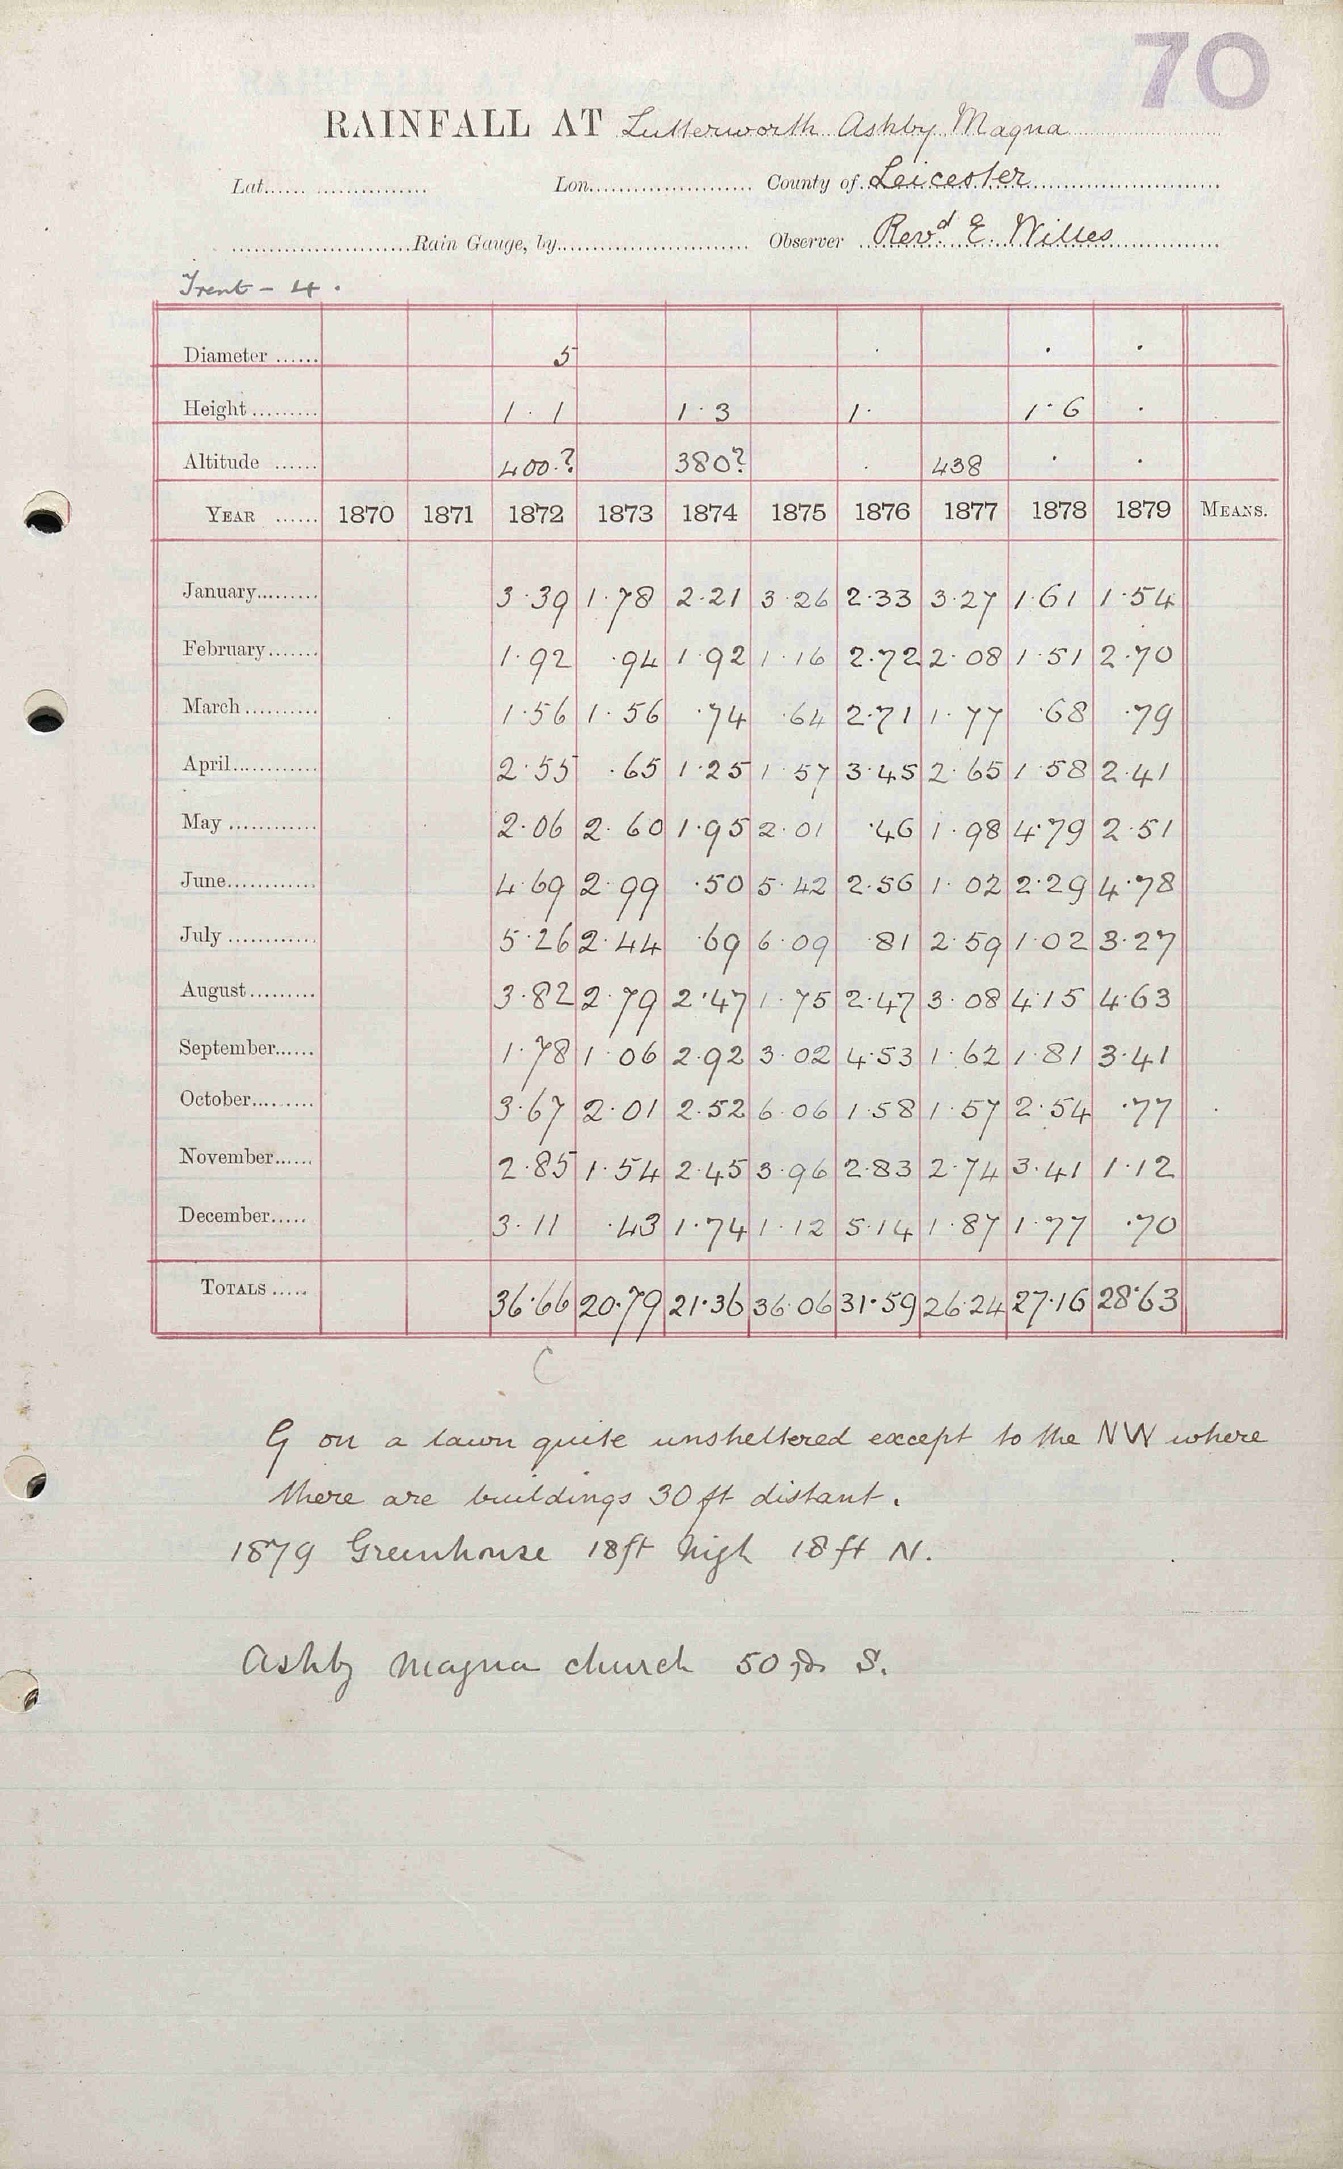 70
RAINFALL AT Lutterworth Ashby Magna
Lat. Lon. County of Leicester
Rain Gauge, by Observer Revd E. Willes
Trent - 4.
Diameter 5 . . .
Height 1.1 1.3 1. 1.6 .
Altitude 400.? 380? . 438 . .
YEAR 1870 1871 1872 1873 1874 1875 1876 1877 1878 1879 MEANS.
January 3.39 1.78 2.21 3.26 2.33 3.27 1.61 1.54
February 1.92 .94 1.92 1.16 2.72 2.08 1.51 2.70
March 1.56 1.56 .74 .64 2.71 1.77 .68 .79
April 2.55 .65 1.25 1.57 3.45 2.65 1.58 2.41
May 2.06 2.60 1.95 2.01 .46 1.98 4.79 2.51
June 4.69 2.99 .50 5.42 2.56 1.02 2.29 4.78
July 5.26 2.44 .69 6.09 .81 2.59 1.02 3.27
August 3.82 2.79 2.47 1.75 2.47 3.08 4.15 4.63
September 1.78 1.06 2.92 3.02 4.53 1.62 1.81 3.41
October 3.67 2.01 2.52 6.06 1.58 1.57 2.54 .77
November 2.85 1.54 2.45 3.96 2.83 2.74 3.41 1.12
December 3.11 .43 1.74 1.12 5.14 1.87 1.77 .70
TOTALS 36.66 20.79 21.36 36.06 31.59 26.24 27.16 28.63
C
G on a lawn quite unsheltered except to the NW where
there are buildings 30 ft distant.
1879 Greenhouse 18ft high 18 ft N.
Ashby Magna church 50 yds S.